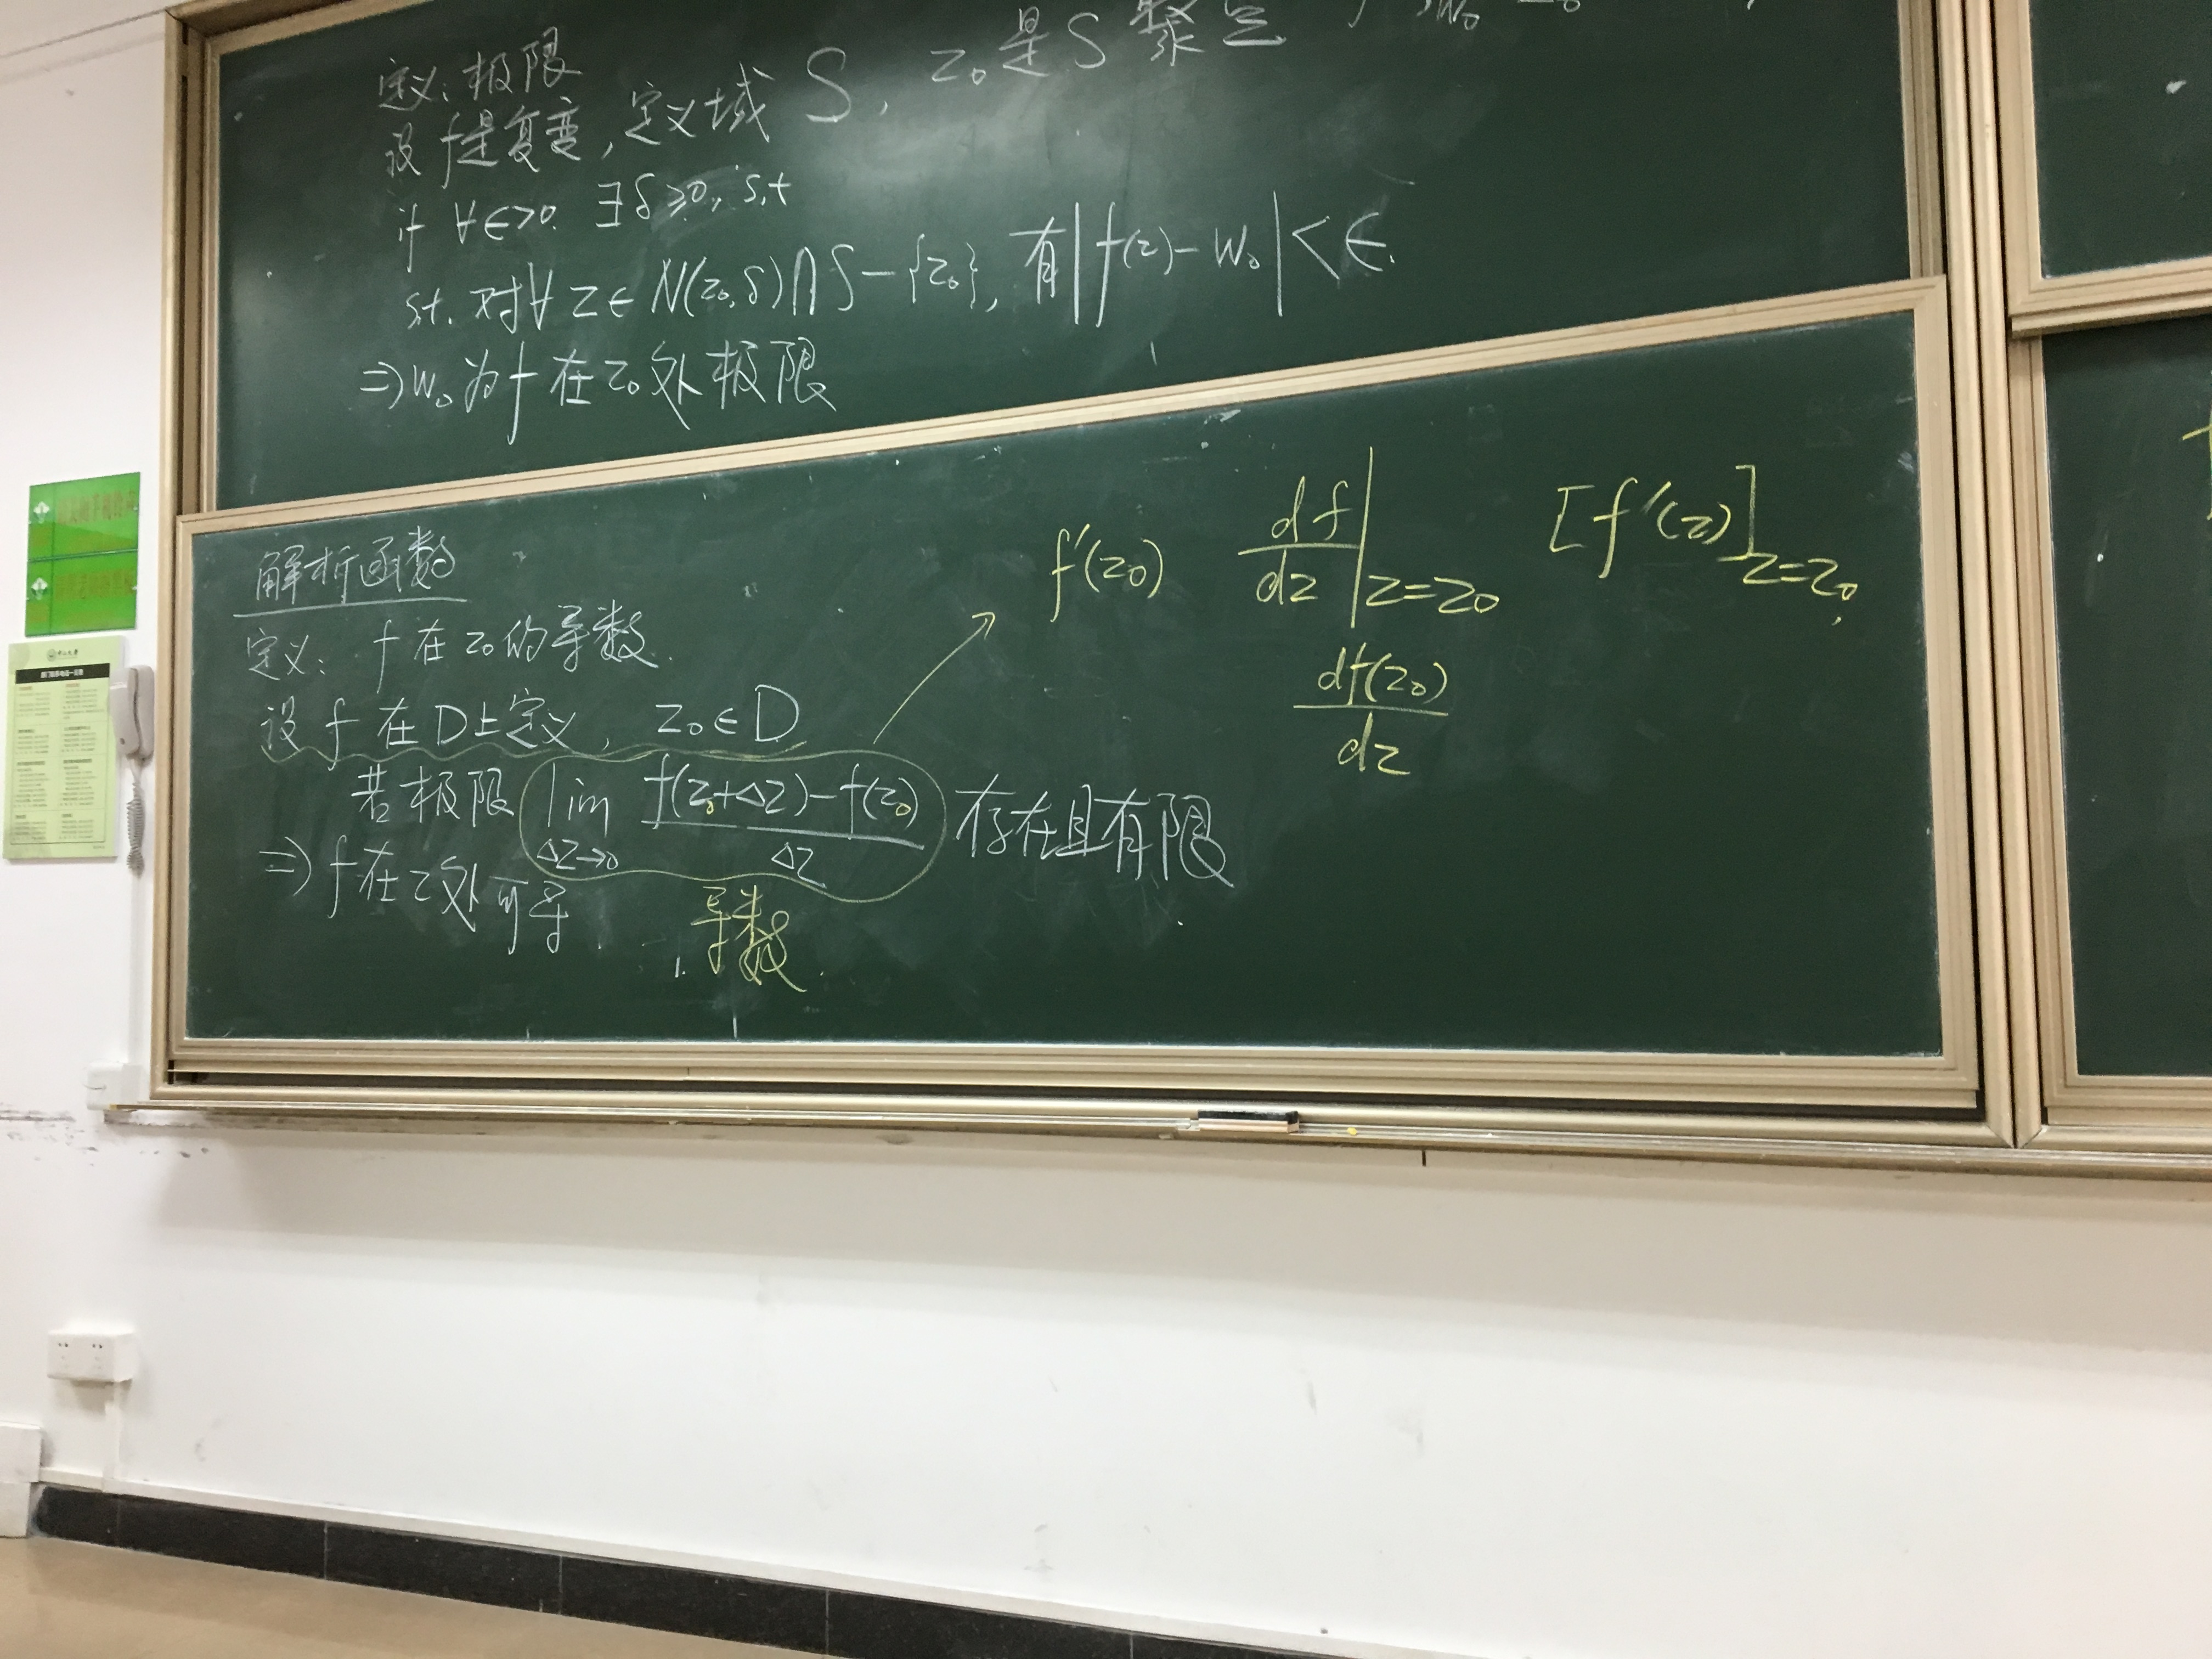 定义：极限
设f是复变，定义域 S，z₀是S聚点
if ∀ϵ>0. ∃δ>0, s,t
s,t. 对∀z∈N(z₀,δ)∩S-{z₀}, 有|f(z)-W₀|<ϵ.
⇒W₀为f在z₀处极限
解析函数
定义：f在z₀的导数.
设f在D上定义，z₀∈D
若极限 lim_{Δz→0} \frac{f(z₀+Δz)-f(z₀)}{Δz} 存在且有限
⇒f在z处可导
导数
f'(z₀) \frac{df}{dz}|_{z=z₀} [f'(z)]_{z=z₀}
\frac{df(z₀)}{dz}